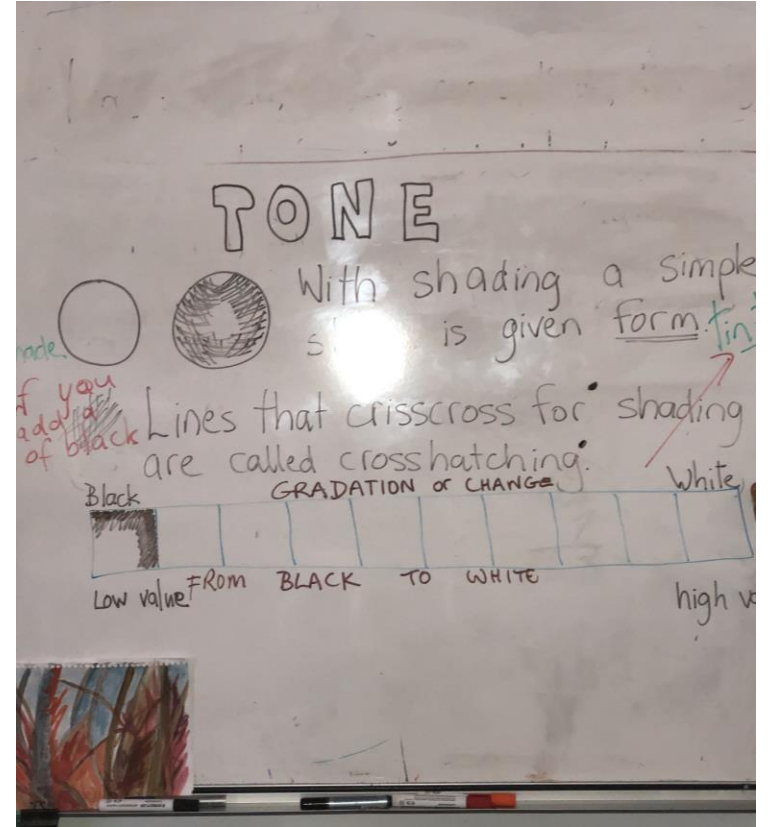 TONE
With shading a simple
is given form.
If you
add a
of black
Lines that crisscross for shading
are called crosshatching.
Black
GRADATION of CHANGE
White
FROM BLACK TO WHITE
Low value
high